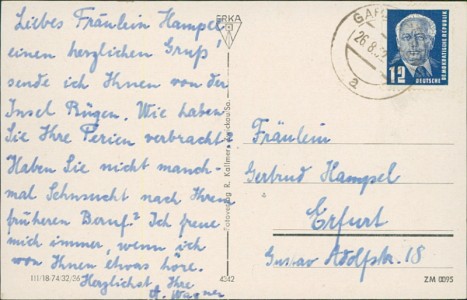 Liebes Fräulein Hampel,
einen herzlichen Gruß
sende ich Ihnen von der
Insel Rügen. Wie haben
Sie Ihre Ferien verbracht?
Haben Sie nicht manch-
mal Sehnsucht nach Ihrem
früheren Beruf? Ich freue
mich immer, wenn ich
von Ihnen etwas höre.
Herzlichst Ihre
A. Wagner
III/18-74/32/36
4342
ERKA
Fotoverlag R. Kallmer, Zwickau/Sa.
26.8.52
a
12
DEUTSCHE
DEMOKRATISCHE REPUBLIK
Fräulein
Gertrud Hampel
Erfurt
Gustav Adolfstr. 18
ZM 0095